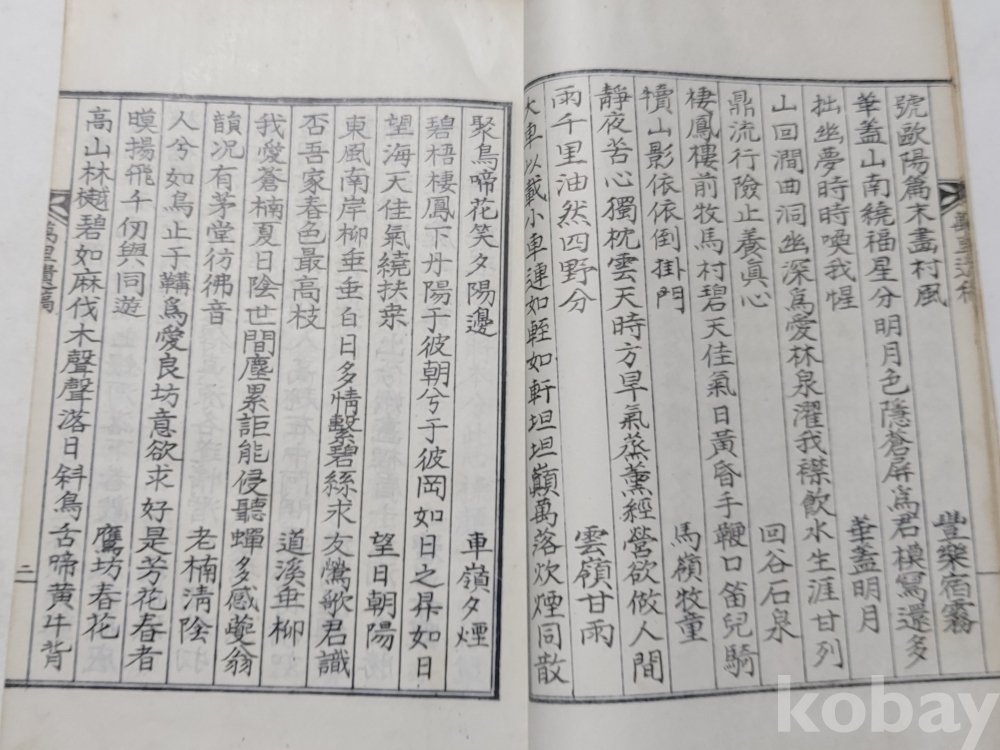 號歐陽篇末畵村風
豊樂宿霧
華盖山南繞福星分明月色隱蒼屏爲君模寫還多
拙幽夢時時喚我惺
華盖明月
山回澗曲洞幽深爲愛林泉濯我襟飮水生涯甘列
鼎流行險止養眞心
回谷石泉
棲鳳樓前牧馬村碧天佳氣日黃昏手鞭口笛兒騎
犢山影依依倒掛門
馬嶺牧童
靜夜苦心獨枕雲天時方旱氣蒸薰經營欲做人間
雨千里油然四野分
雲嶺甘雨
大車以載小車連如輊如軒坦坦巓萬落炊煙同散
聚鳥啼花笑夕陽邊
車嶺夕煙
碧梧棲鳳下丹陽于彼朝兮于彼岡如日之昇如日
望海天佳氣繞扶桒
望日朝陽
東風南岸柳垂垂白日多情繫碧絲求友鶯歌君識
否吾家春色最高枝
道溪垂柳
我愛蒼楠夏日陰世間塵累詎能侵聽蟬多感夔翁
韻况有茅堂彷彿音
老楠清陰
人兮如鳥止于韝爲愛良坊意欲求好是芳花春者
暯揚飛千仞與同遊
鷹坊春花
高山林樾碧如麻伐木聲聲落日斜鳥舌啼黄牛背
萬里遺稿
二
kobay